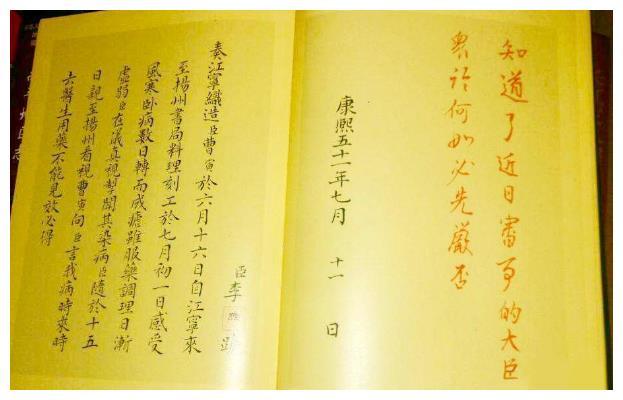 知道了近日審事的大臣
何如必先嚴否
康熙五十一年七月 十一 日
臣李煦跪
奏江寧織造臣曹寅於六月十六日自江寧來
至揚州書局料理刻工於七月初一日感受
風寒臥病數日轉而成瘧雖服藥調理日漸
虛弱臣在儀真視掣聞其染病臣隨於十五
日親至揚州看視曹寅向臣言我病時來時
去醫生用藥不能見效必得